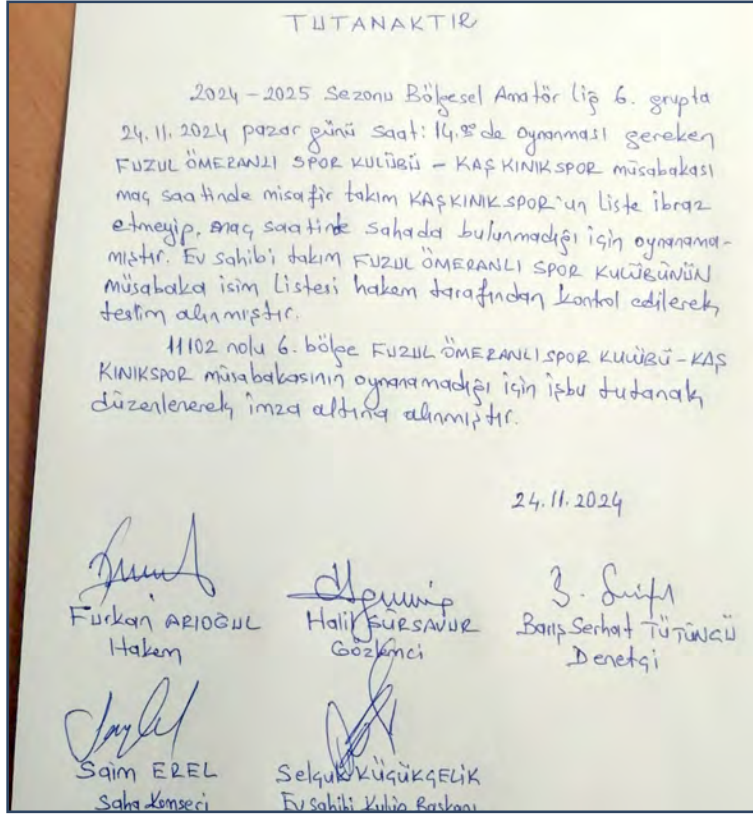 TUTANAKTIR
2024-2025 Sezonu Bölgesel Amatör Lig 6. grupta
24.11.2024 pazar günü saat: 14.00 de oynanması gereken
FUZUL ÖMERANLI SPOR KULÜBÜ - KAŞ KINIKSPOR müsabakası
maç saatinde misafir takım KAŞKINIKSPOR'un liste ibraz
etmeyip, maç saatinde sahada bulunmadığı için oynanama-
mıştır. Ev sahibi takım FUZUL ÖMERANLI SPOR KULÜBÜNÜN
müsabaka isim Listesi hakem tarafından kontrol edilerek
teslim alınmıştır.
11102 nolu 6. bölge FUZUL ÖMERANLI SPOR KULÜBÜ-KAŞ
KINIKSPOR müsabakasının oynanamadığı için işbu tutanak
düzenlenerek imza altına alınmıştır.
24.11.2024
Furkan ARIOĞUL Halil GÜRSAVUR Barış Serhat TÜTÜNCÜ
Hakem Gözlemci Denetçi
Saim EREL Selçuk KÜÇÜKÇELİK
Saha Komseri Ev sahibi Kulüp Başkanı